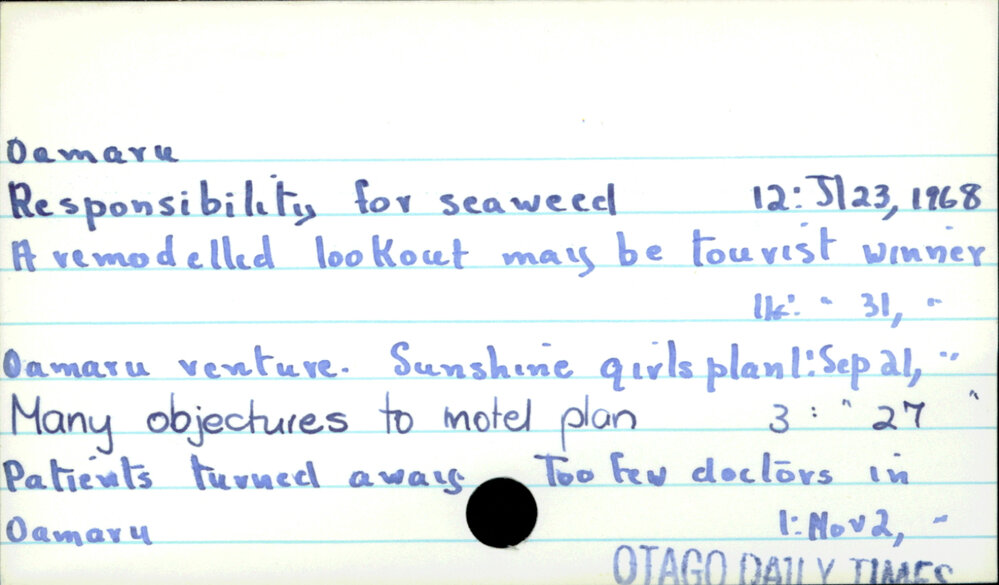 Oamaru
Responsibility for seaweed 12: Jl 23, 1968
A remodelled lookout may be tourist winner
14: " 31, "
Oamaru venture. Sunshine girls plan 1: Sep 21, "
Many objectures to motel plan 3 : " 27 "
Patients turned away Too few doctors in
Oamaru 1: Nov 2, "
OTAGO DAILY TIMES